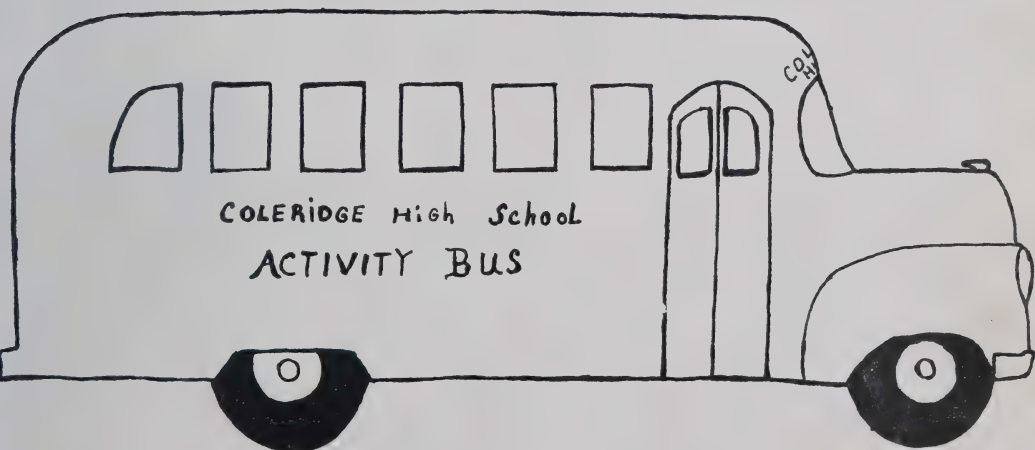 COL
HI
COLERiDGE HiGh School
ACTIVITY BUS